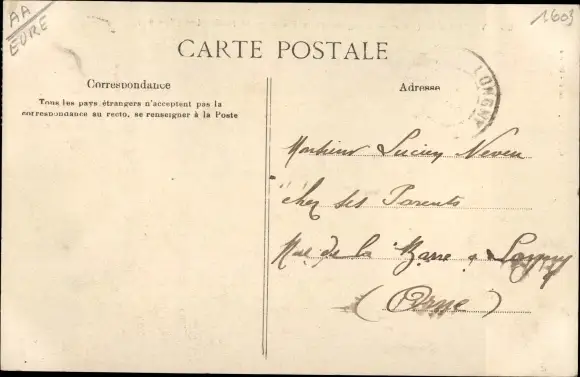 AA
EURE
1603
CARTE POSTALE
Correspondance
Tous les pays étrangers n'acceptent pas la
correspondance au recto, se renseigner à la Poste
Adresse
LONGNY
Monsieur Lucien Neveu
chez ses Parents
Rue de la Barre à Longny
(Orne)